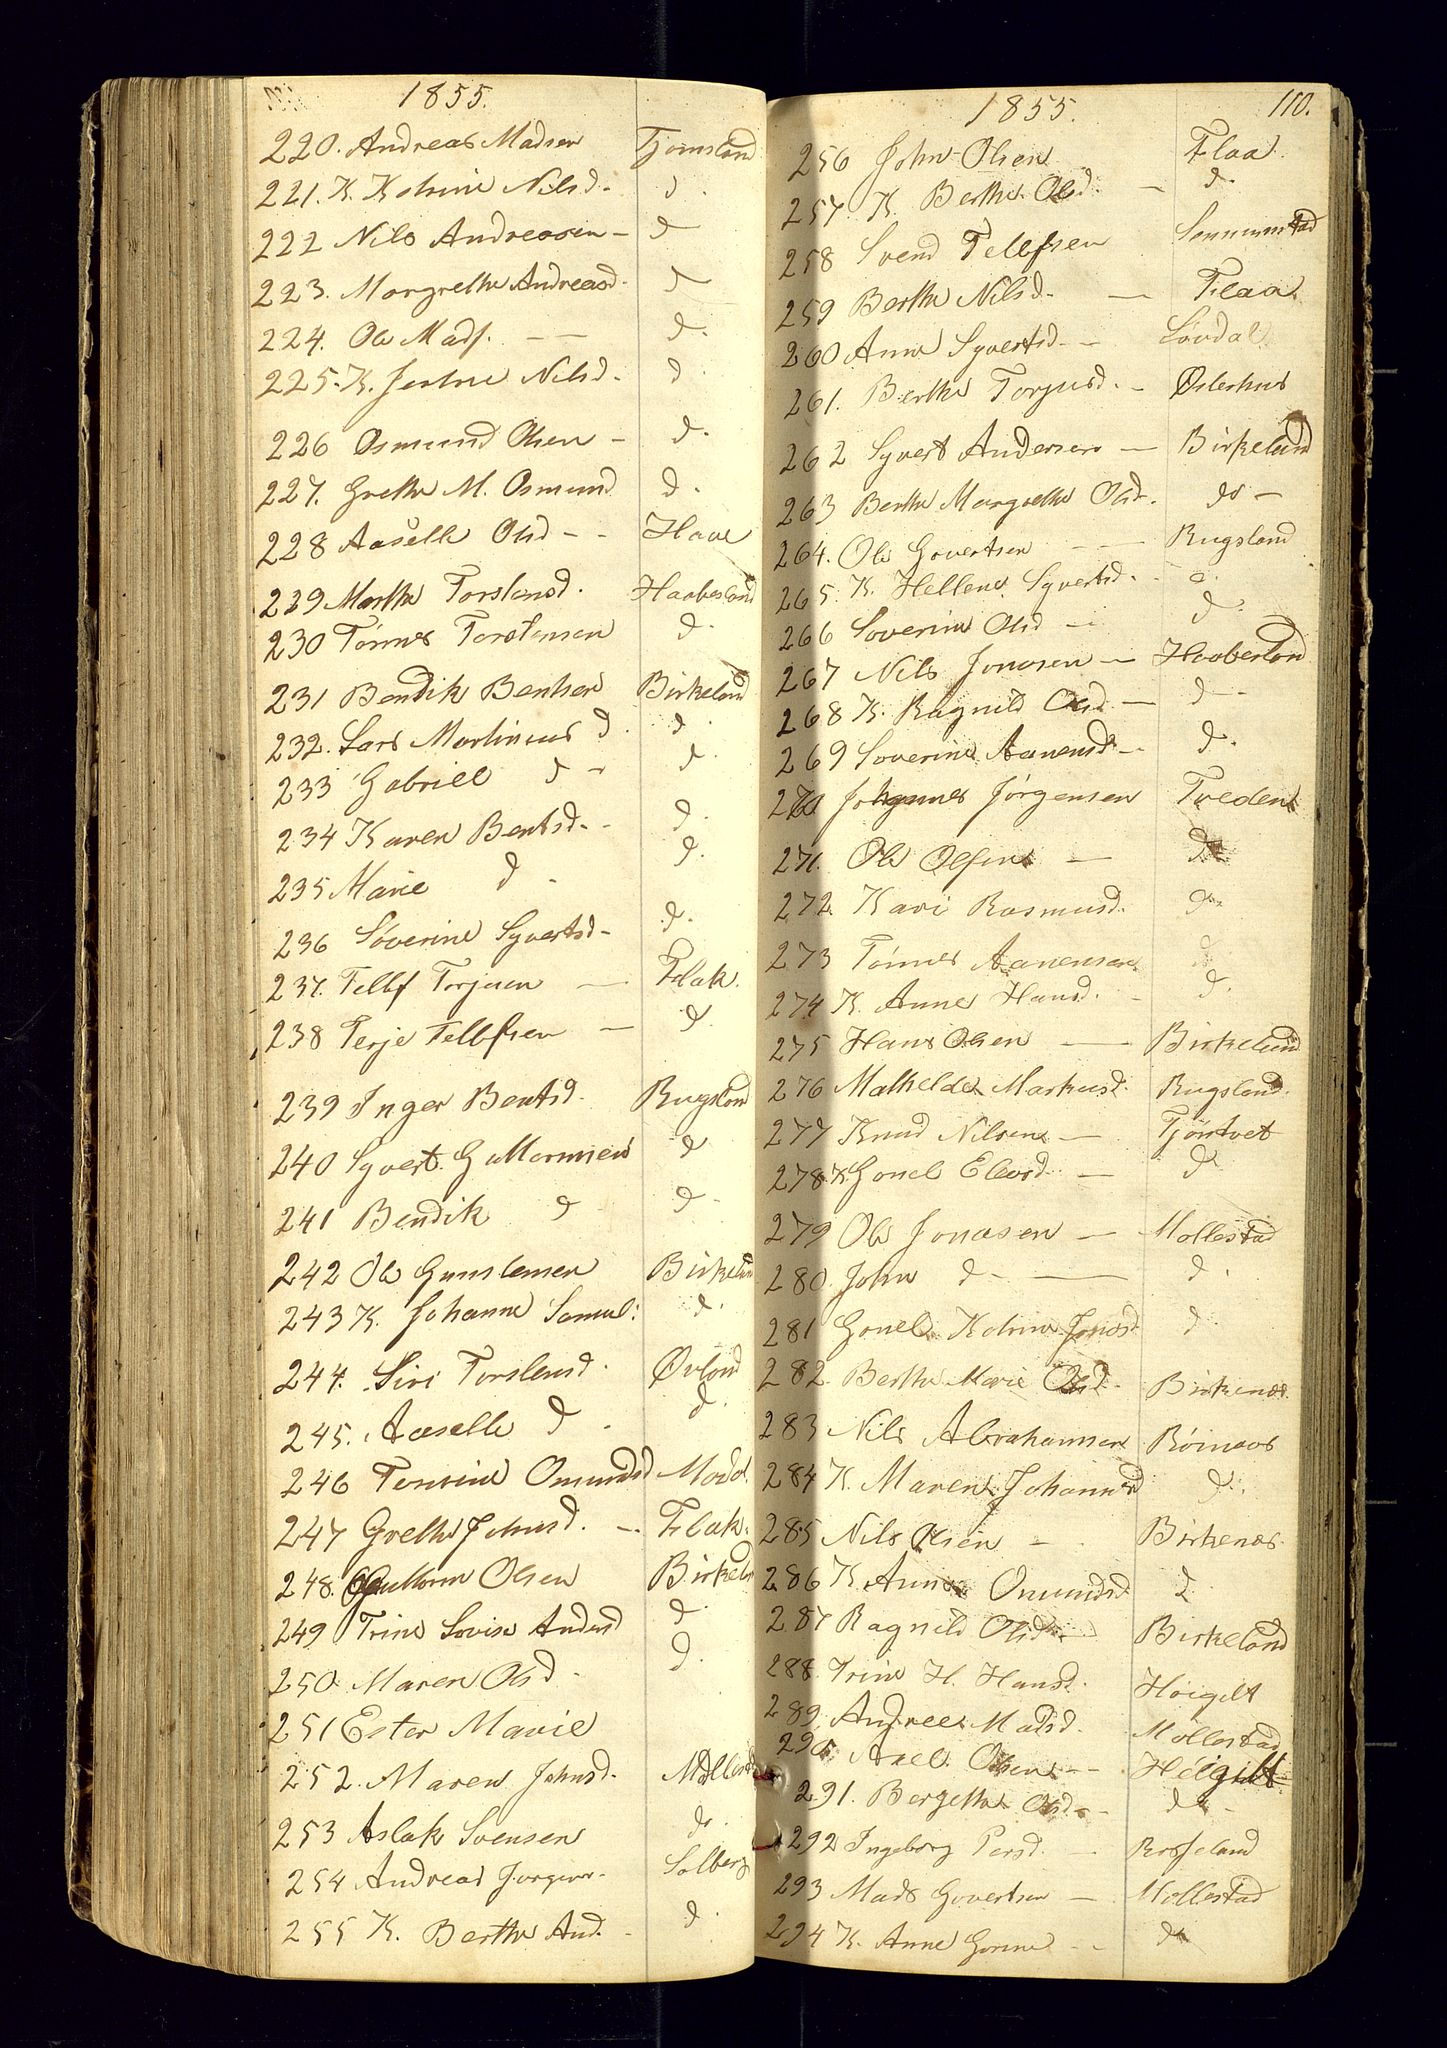 1855.
220. Andreas Madsen Tjomsland
221. K. Katrine Nilsd. d.
222 Nils Andreassen - d
223. Margrethe Andreasd. d
224. Ole Mads. - - d.
225. K. Nilsd. d
226 Osmund Olsen - d.
227. Grethe M. Osmund d.
228 Aaselle Olsd - - Haave
229 Marthe Torstensd. Haabesland
230 Tønnes Torstensen d.
231 Bendik Bentsen Birkeland
232. Lars Martinius d. d
233 Gabriel d - d.
234 Karen Bentsd. - d.
235 Marie d - d.
236 Søverine Syvertsd - d.
237. Tellf Torjusen — Flak.
238 Terje Tellefsen — d
239 Inger Bentsd. Rugsland
240 Syvert Guttormsen d
241 Bendik d d -
242 Ole Gunstensen Birkeland
243 K. Johanne Samuel: d.
244. Siri Torstensd. Øvland
245. Aaselle d. d.
246 Omundsd
247 Grethe Johnsd. - Flak.
248. Guttorm Olsen Birkeln
249 Trine Lovise Andersd d.
250. Maren Olsd - d.
251 Ester Marie
252. Maren Johnsd. Mollestad
253 Aslak Svensen d.
254 Andreas Jørgens. Solberg
255 K. Berthe And. - d.
1855. 110.
256 John Olsen Flaa.
257. K. Berthe Olsd. — d.
258 Svend Tellefsen
259 Berthe Nilsd. — Flaa
260 Anne Syvertsd - - Løvdal
261. Berthe Torjusd. - Østerhus
262 Syvert Andersen — Birkeland
263 Berthe Margrethe Olsd. do -
264. Ole Govertsen — Rugsland
265. K. Hellene Syvertsd. - d.
266 Soverine Olsd — d.
267 Nils Jonasen — Haabesland
268 K. Ragnild Olsd — d -
269 Soverine Aanensd - d.
270 Johannes Jørgensen Tveden
271. Ole Olsen — d
272. Kari Rasmusd. d.
273 Tønnes Aanensen d
274 K. Anne Hansd. - d.
275 Hans Olsen — Birkeland
276 Mathelde Markusd. Rugsland.
277 Knud Nilsen — Tjøntvet
278. K. Gonel Elevsd. — d
279 Ole Jonasen — Mollestad
280. John d — d.
281 Gonel Katrine Jonasd d
282. Berthe Marie Olsd. Birkenæs
283 Nils Abrahamsen
284 K. Maren Johannesd d.
285 Nils Olsen - Birkenæs
286 K. Anne Omundsd d
287 Ragnild Olsd - Birkeland
288. Trine H. Hansd. Høigilt
289. Andrea Madsd. Mollestad
290. Axel Olsen - - Høigilt
291. Bergethe Olsd - d -
292 Ingeborg Persd. — Rosseland
293 Mads Govertsen — Mollestad
294 K. Anne - - d